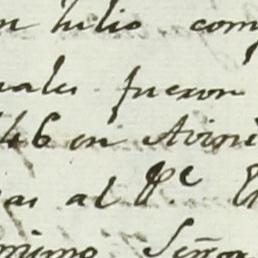 en Julio com
uales fueron
46 en Avini
as al P.e
nimo Señor